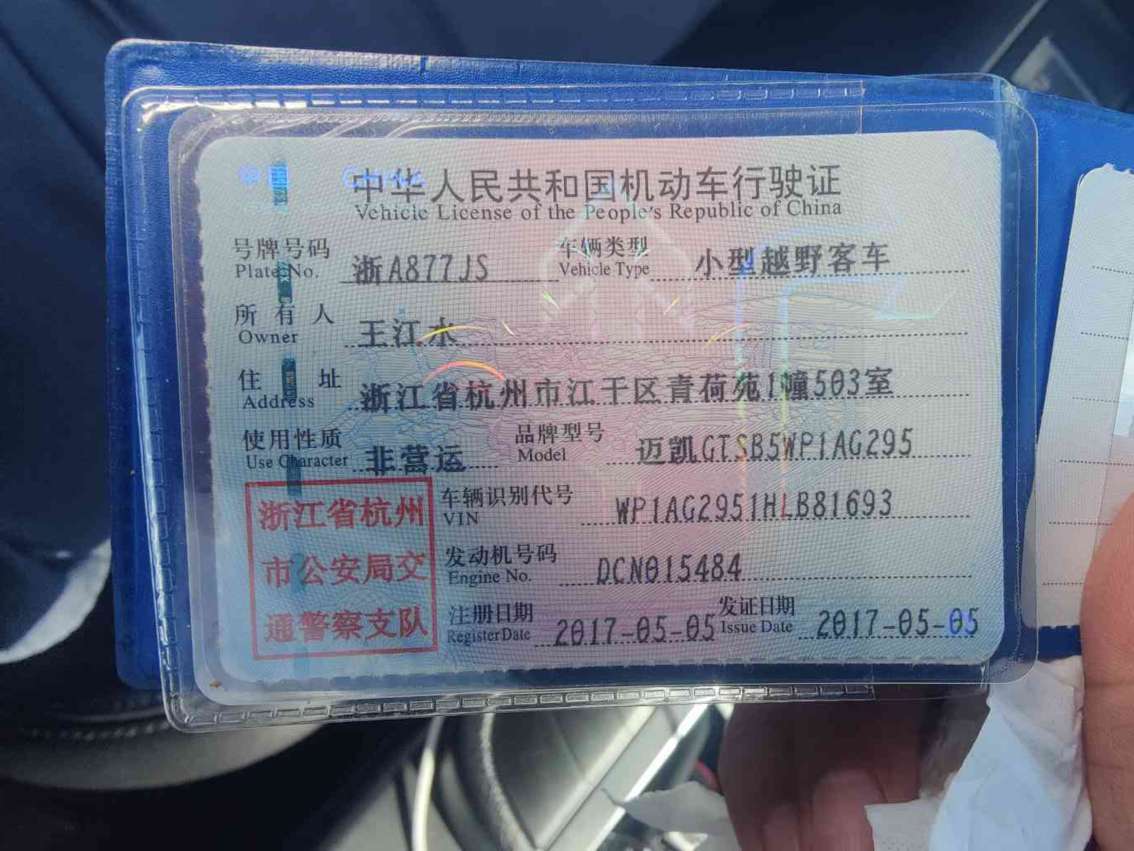 中华人民共和国机动车行驶证
Vehicle License of the People's Republic of China
号牌号码 浙A877JS 车辆类型 小型越野客车
Plate No. Vehicle Type
所有人 王江水
Owner
住址 浙江省杭州市江干区青荷苑1幢503室
Address
使用性质 非营运 品牌型号 迈凯GTSB5WP1AG295
Use Character Model
浙江省杭州
市公安局交
通警察支队
车辆识别代号 WP1AG2951HLB81693
VIN
发动机号码 DCN015484
Engine No.
注册日期 2017-05-05 发证日期 2017-05-05
Register Date Issue Date